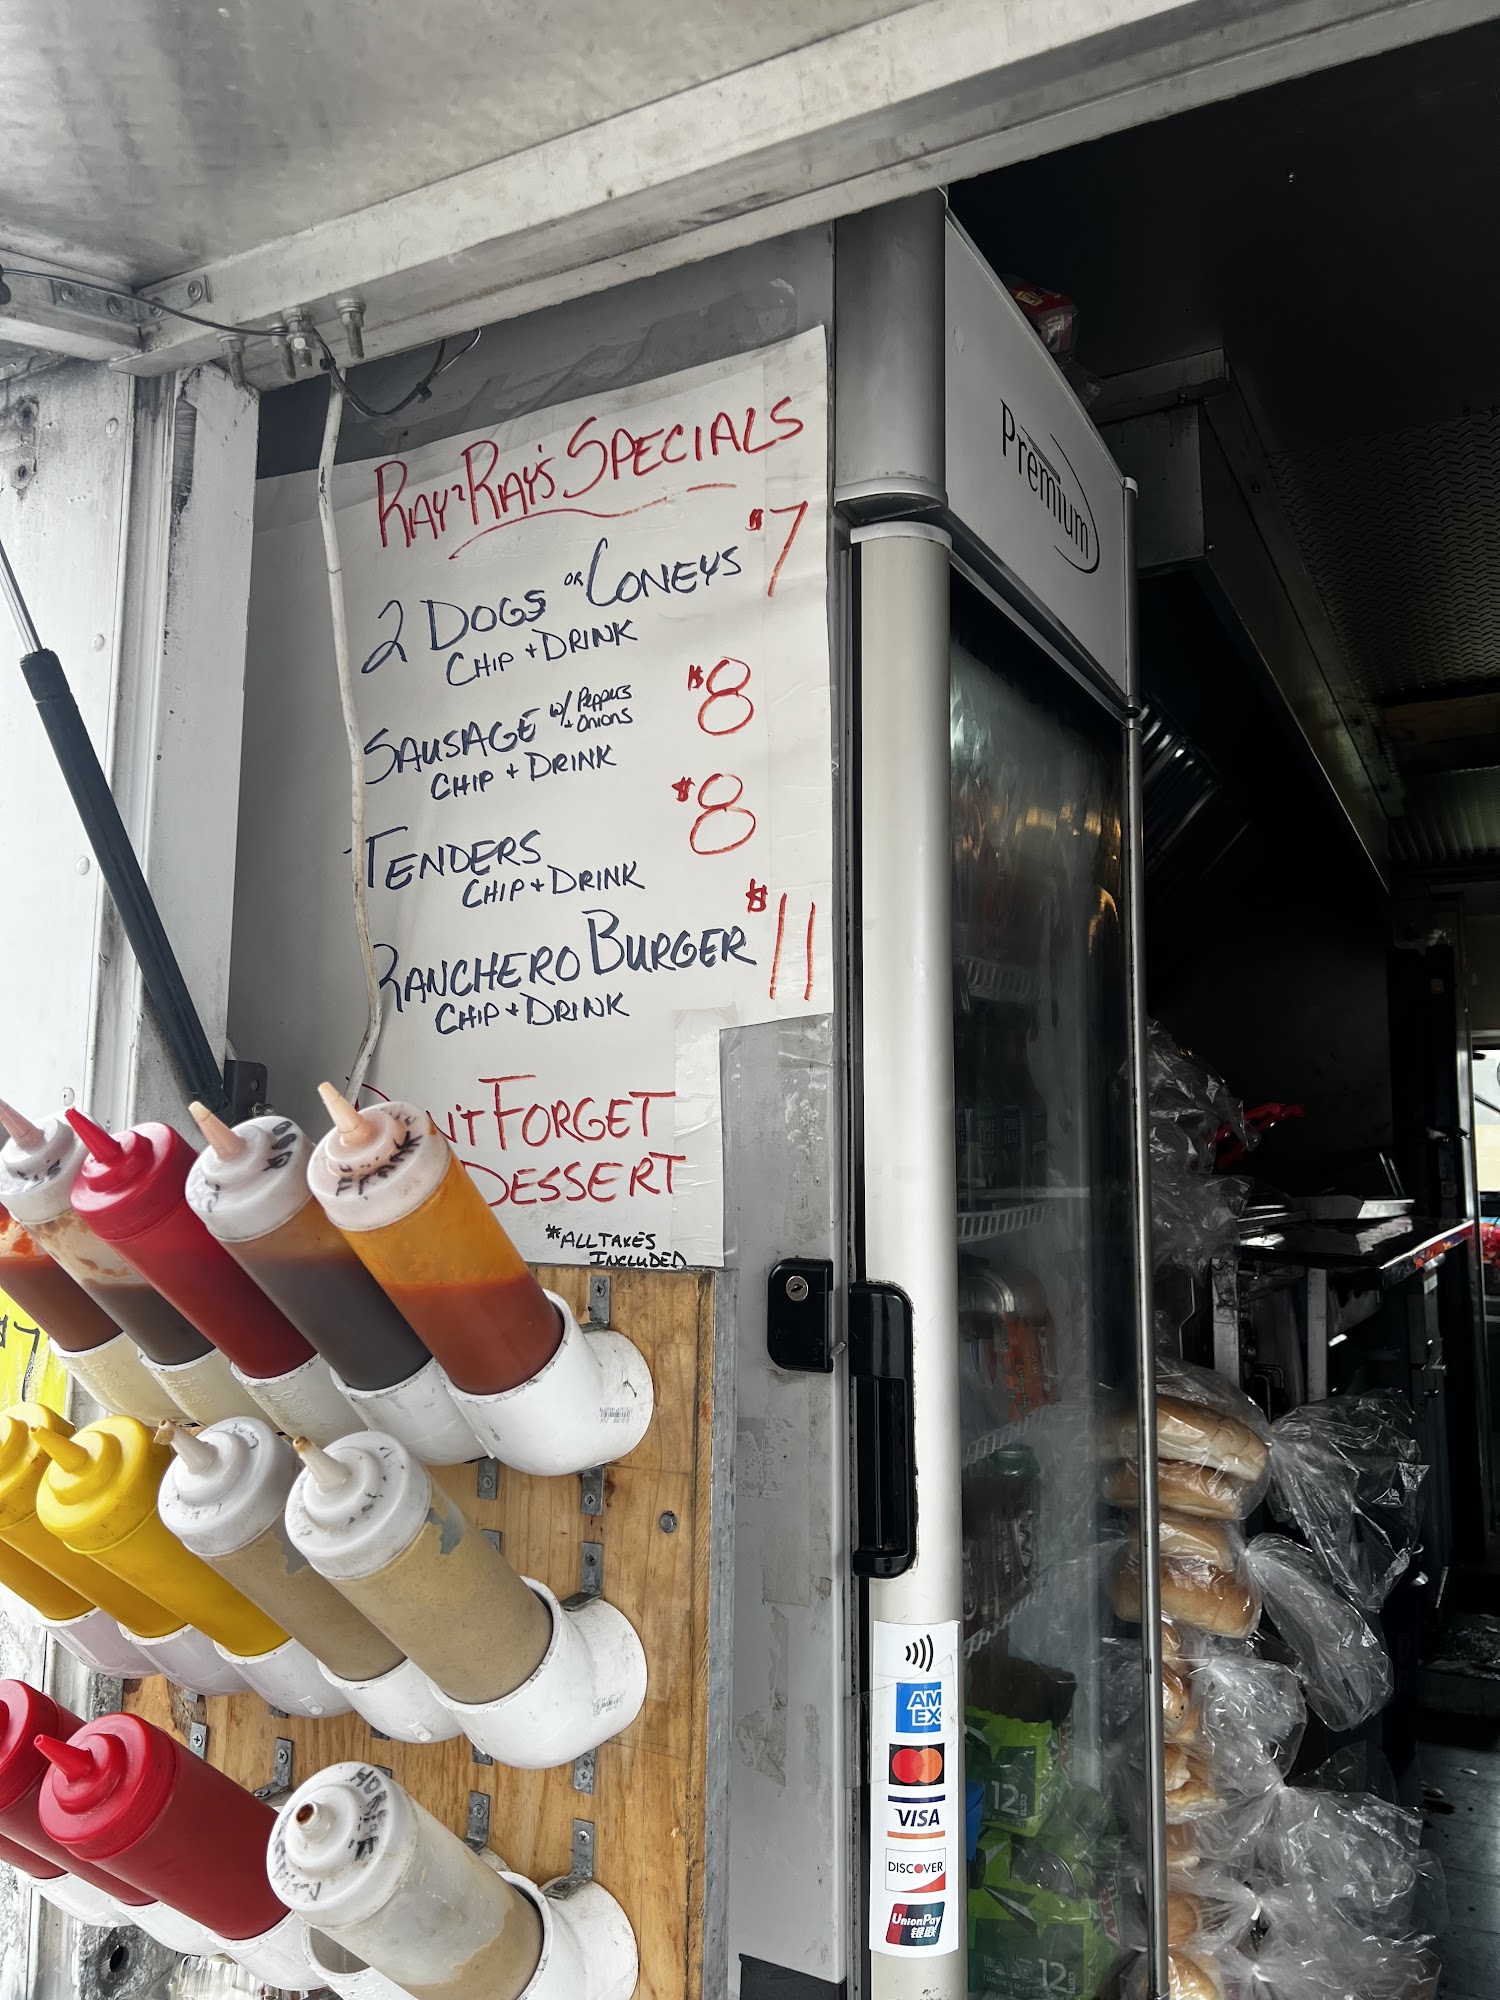 RAY-RAY'S SPECIALS
2 DOGS OR CONEYS $7
CHIP + DRINK
SAUSAGE W/ PEPPERS + ONIONS $8
CHIP + DRINK
TENDERS $8
CHIP + DRINK
RANCHERO BURGER $11
CHIP + DRINK
DON'T FORGET
DESSERT
*ALL TAXES
INCLUDED
Premium
$7
BBQ
HORSE
AM
EX
VISA
DISCOVER
UnionPay
银联
12
12